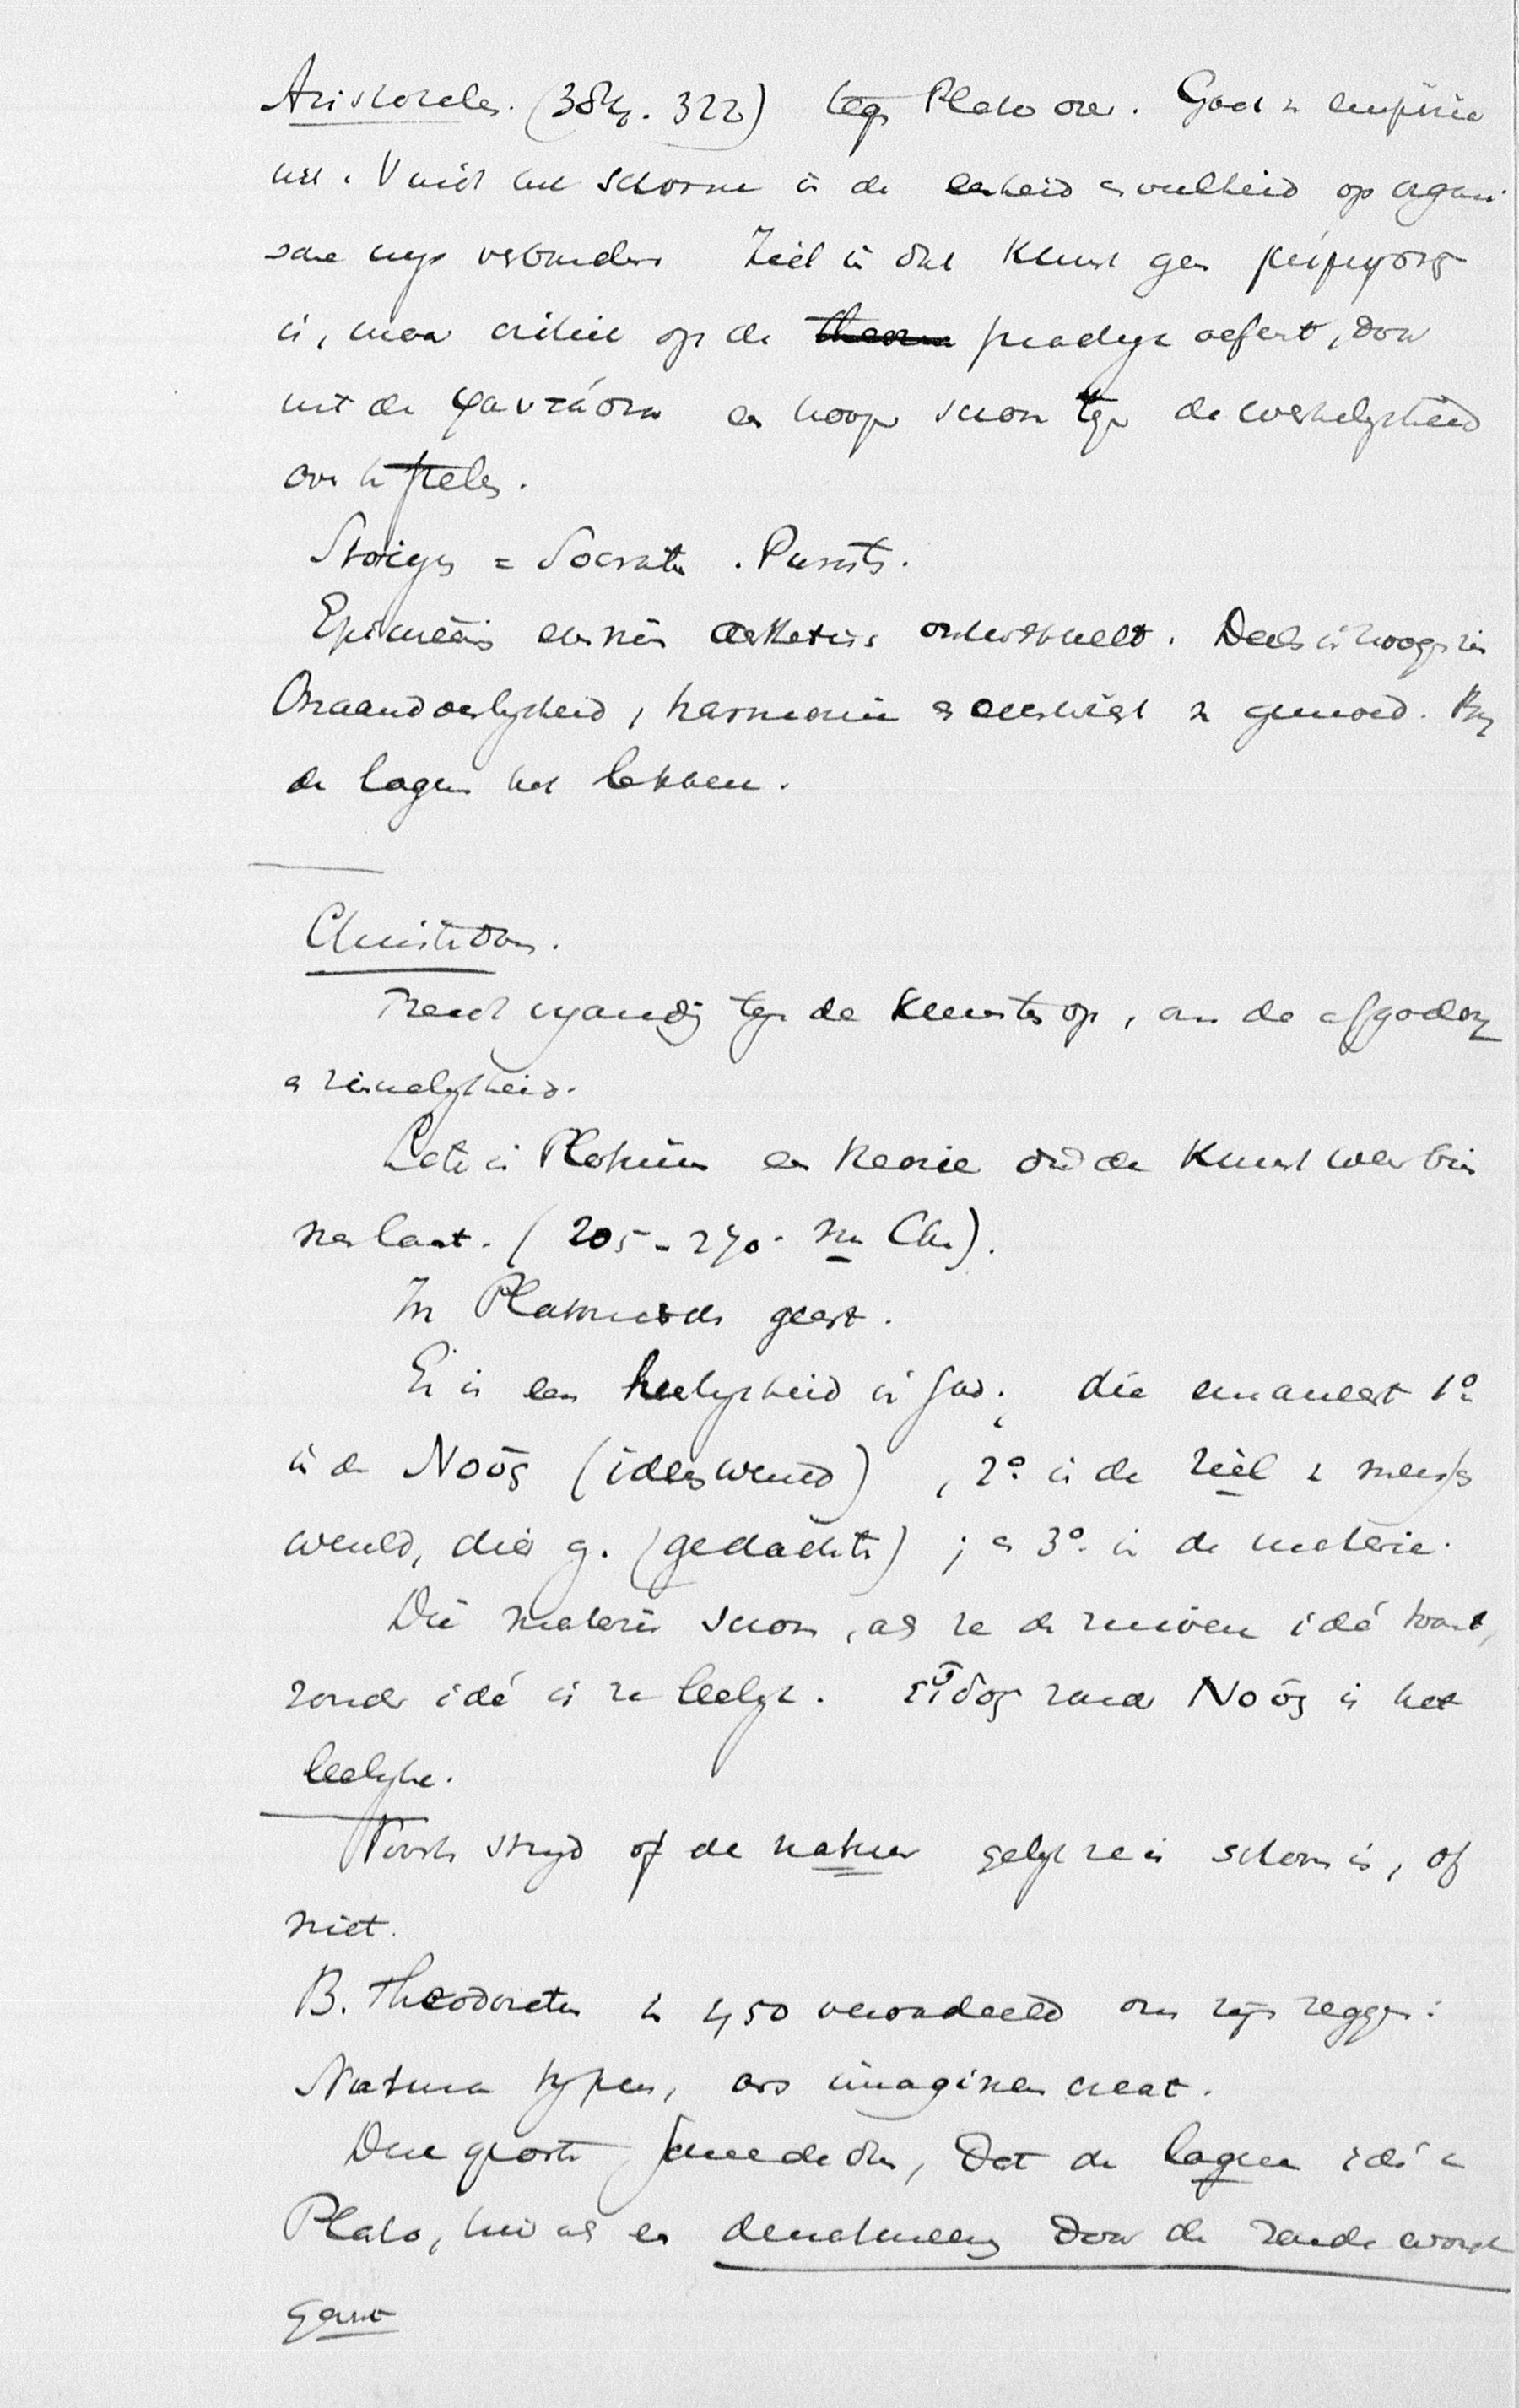 Aristoteles. (384. 322) tegen Plato over. Gaat v empirie
uit. Vindt het schoone in de eenheid en veelheid op organi
sche wyze verbonden. Ziet in dat Kunst geen μίμησις
is, maar critiek op de practijk oefent, door
uit de φαντάσια en hooger schoon tegen de werkelykheid
over te stellen.
Stoicyn = Socrates. Purist.
Epicureïs een niet aesthetisch ontwikkeld. Deels in hooger zin
Onaandoenlykheid, harmonie en evenwicht v gemoed. By
de lagere het lekkere.
Christendom.
Treedt vyandig tegen de Kunsten op, om de afgodery
en zinnelykheid.
Later in Plotinus een theorie die de Kunst weer bin
nenlaat. (205-270. na Chr).
In Platonischen geest.
Er is een heerlykheid in God. die emaneert 1o
in de Noös (ideenwereld), 2o in de ziel v menschen
wereld, die g. (gedachte); en 3o in de materie.
Die materie schoon, als ze de zuivere idé toont,
zonder idé is ze leelyk. εἶδος zonder Noös is het
leelyke.
Voorts stryd of de natuur gelyk ze is schoon is, of
niet.
B. Theodoretus in 450 veroordeeld om zyn zeggen:
Natura typum, ars imaginem creat.
Deze grootste, dat de lagere idé v
Plato, hier als en door de zonde wordt